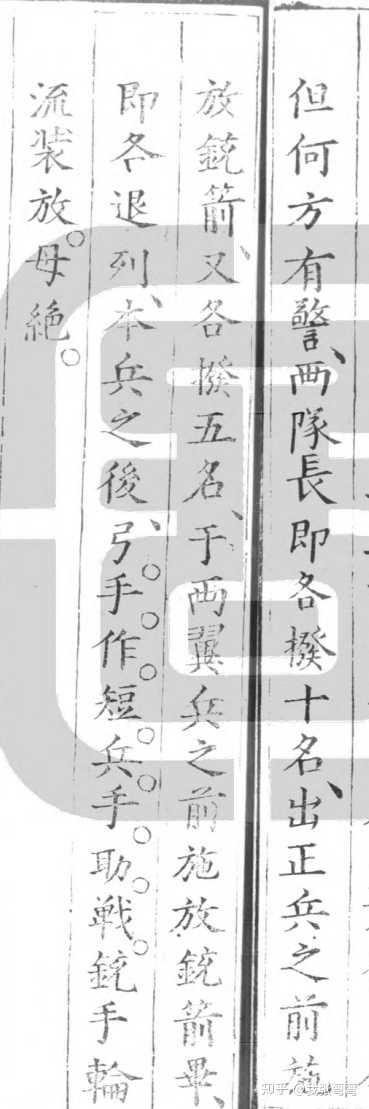 但何方有警、两隊長即各撥十名、出正兵之前施
放銃箭、又各撥五名、于两翼兵之前施放銃箭畢、
即各退列、本兵之後、弓手。作。短。兵。手。助。戰。銃手輪
流装放。毋絶。
知乎